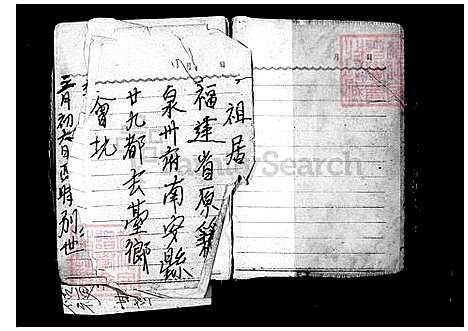 祖居
福建省原籍
泉州府南安縣
廿九都玄臺鄉
會北
三月初六日酉時別世
FamilySearch